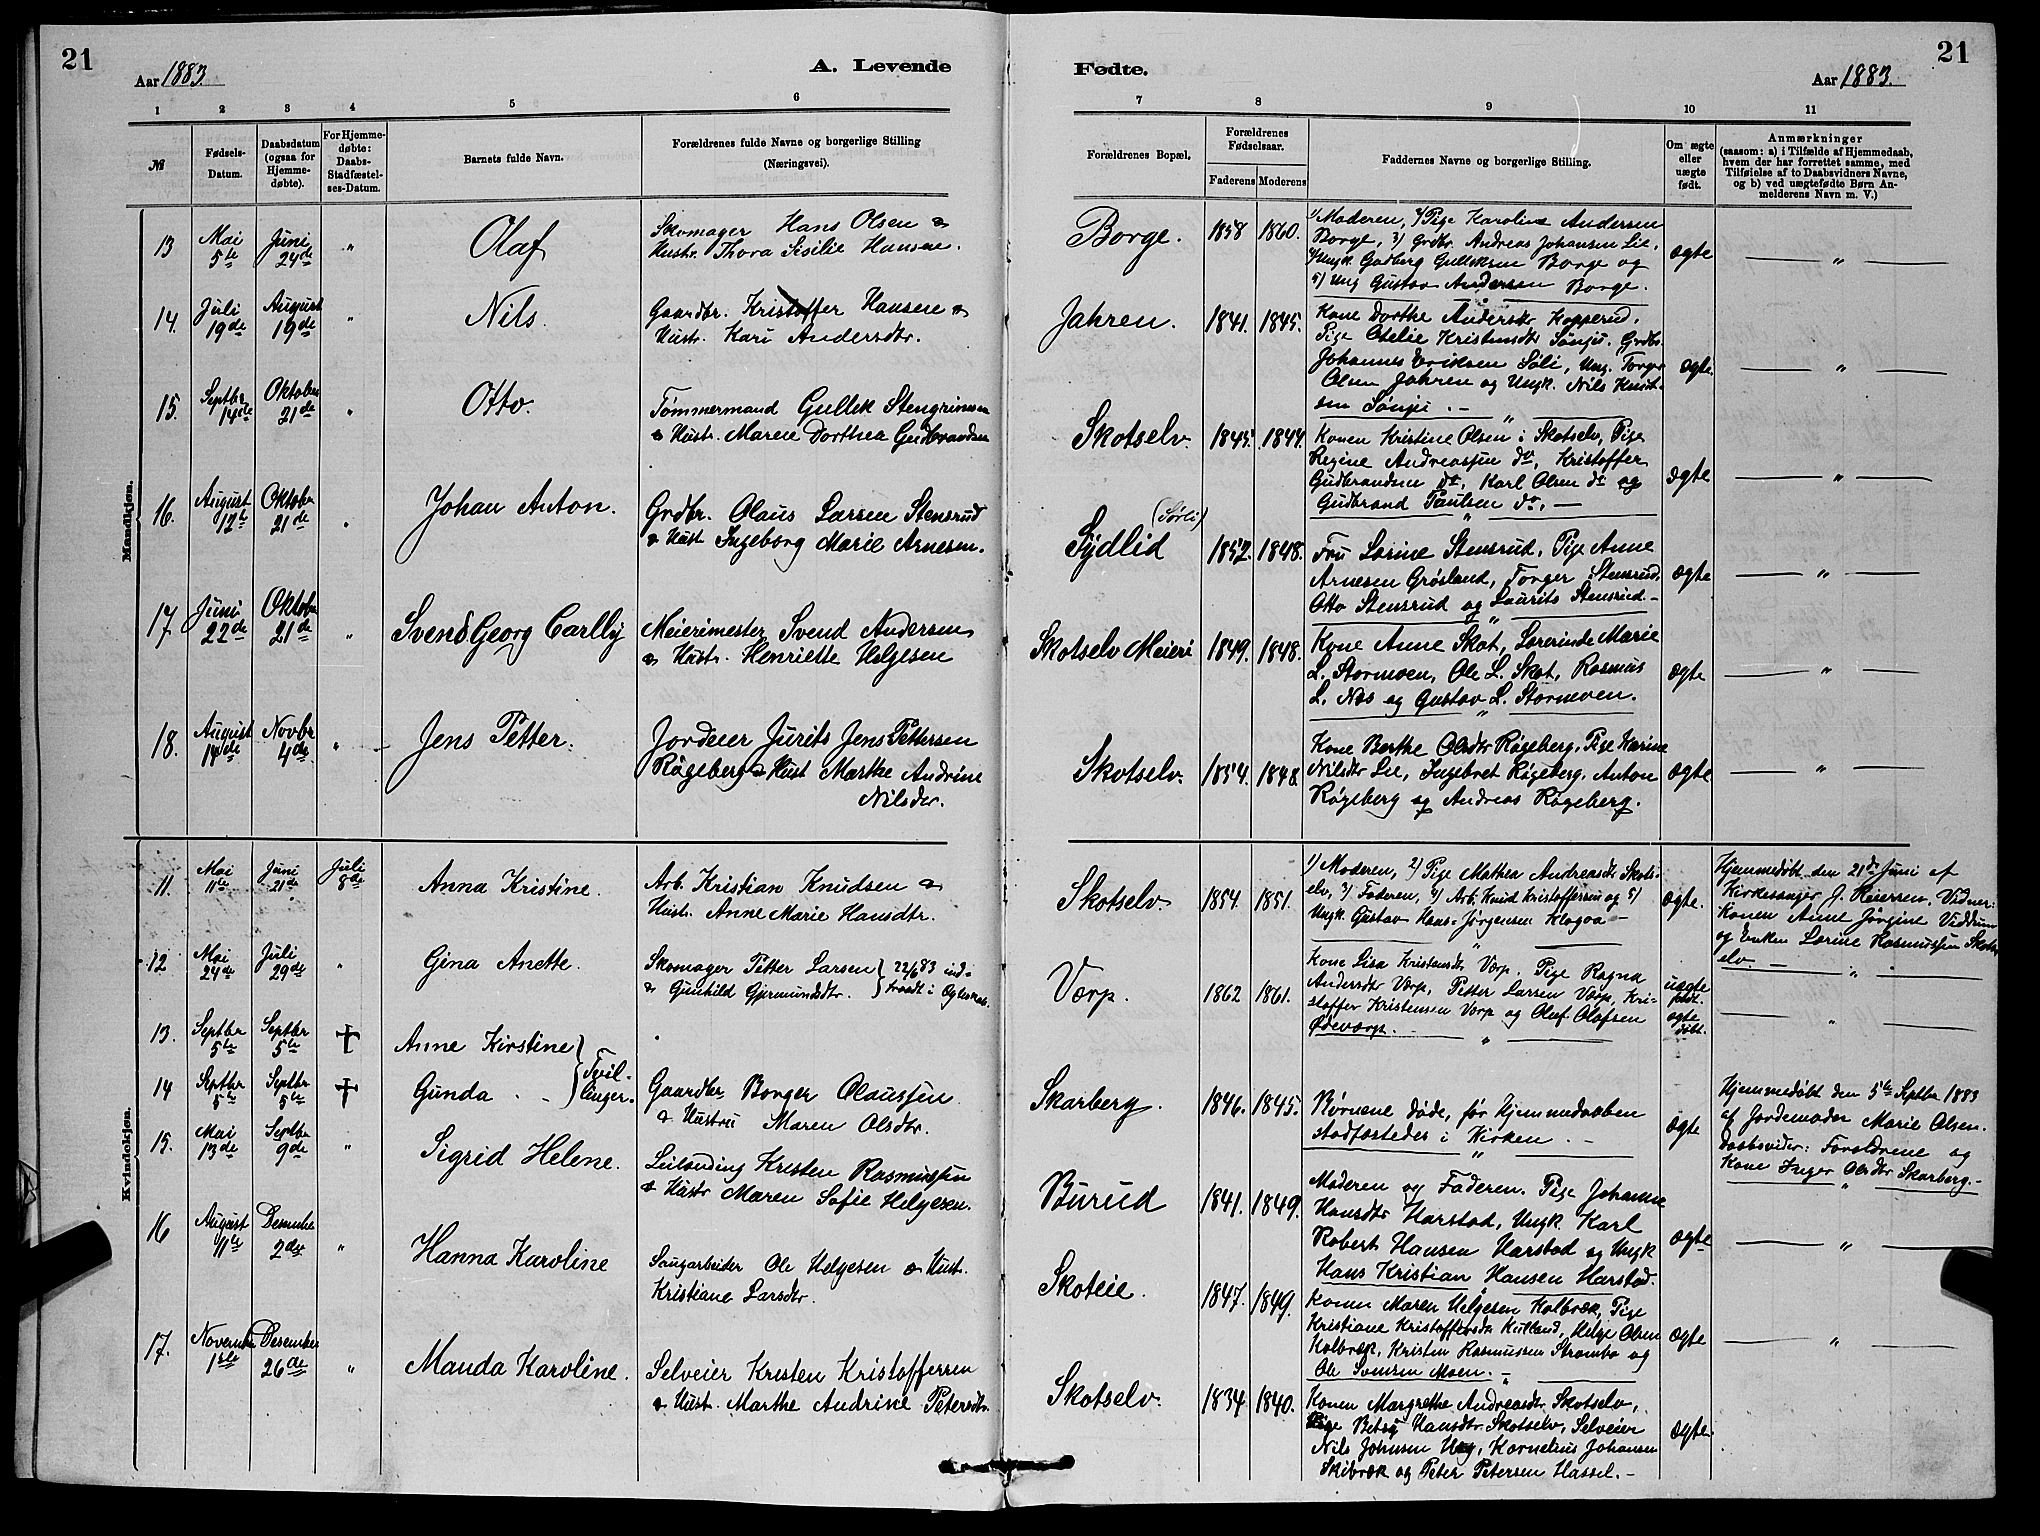 21
Aar 1883.
A. Levende
1 2 3 4 5 6
№
Fødsels-Datum.
Daabsdatum (ogsaa for Hjemmedøbte).
For Hjemmedøbte: Daabs-Stadfæstelses-Datum.
Barnets fulde Navn.
Forældrenes fulde Navne og borgerlige Stilling
(Næringsvei).
Mandkjøn.
13 Mai 5te Juni 24de " Olaf
Skomager Hans Olsen &
Hustr. Thora Sisilie Hansen.
14. Juli 19de August 19de " Nils.
Gaardbr. Kristoffer Hansen &
Hustr. Kari Andersdtr.
15. Septbr 14de Oktober 21de " Otto.
Tømmermand Gullik Stengrimsen
& Hustr. Maren Dorthea Gudbrandsen
16. August 12te Oktober 21de " Johan Anton.
Grdbr. Olaus Larsen Stensrud
& Hust Ingeborg Marie Arnesen.
17 Juni 22de Oktobr 21de " Svend Georg Carlly
Meierimester Svend Andersen
& Hustr. Henriette Helgesen
18. August 14de Novbr 4de " Jens Petter.
Jordeier Jurits Jens Pettersen
Røgeberg & Hust Marthe Andrine
Nilsdtr.
Kvindekjøn.
11. Mai 11te Juni 21de Juli 8de Anna Kristine.
Arb. Kristian Knudsen &
Hustr. Anne Marie Hansdtr.
12 Mai 24de Juli 29de " Gina Anette.
Skomager Petter Larsen } 22/6 83 ind-
& Gunhild Gjermundsdtr. } traadt i Ægtesk.
13. Septbr 5te Septbr 5te † Anne Kirstine } Tvil-
14 Septbr 5te Septbr 5te † Gunda - - } linger.
Gaardbr Borger Olaussen
& Hustru Maren Olsdtr.
15. Mai 13de Septbr 9de " Sigrid Helene.
Leilending Kristen Rasmussen
& Hustr Maren Sofie Helgesen.
16 August 11te Desember 2den " Hanna Karoline
Saugarbeider Ole Helgesen & Hust.
Kristiane Larsdtr.
17. November 1ste Desember 26de " Manda Karoline.
Selveier Kristen Kristoffersen
& Hust. Marthe Andrine Petersdtr.
Fødte.
Aar 1883.
21
7 8 9 10 11
Forældrenes Bopæl.
Forældrenes Fødselsaar.
Faderens Moderens
Faddernes Navne og borgerlige Stilling.
Om ægte eller uægte født.
Anmærkninger
(saasom: a) i Tilfælde af Hjemmedaab,
hvem der har forrettet samme, med
Tilføielse af to Daabsvidners Navne,
og b) ved uægtefødte Børn An-
melderens Navn m. V.)
Borge. 1858 1860.
1) Moderen, 2) Pige Karoline Andersen
Borge, 3) Grdbr. Andreas Johansen Lie,
4) Ungk Gudberg Gulliksen Borge og
5) Ung Gustav Andersen Borge.
ægte "
Jahren. 1841. 1845.
Kone Dorthe Andersdtr Kopperud,
Pige Otelie Kristensdtr Sønju. Grdbr.
Johannes Eriksen Søli, Ung. Torger
Olsen Jahren og Ungk. Nils Knut-
sen Sønju. -
ægte. "
Skotselv 1845. 1844.
Konen Kristine Olsen i Skotselv, Pige
Regine Andreassen do, Kristoffer
Gudbrandsen do, Karl Olsen do og
Gudbrand Paulsen do. -
ægte "
Sydlid (Sørli) 1852. 1848.
Fru Lorine Stensrud, Pige Anne
Arnesen Grøsland, Torger Stensrud,
Otto Stensrud og Laurits Stensrud -
ægte "
Skotselv Meieri 1849. 1848.
Kone Anne Skot, Lærerinde Marie
L. Stormoen, Ole L. Skot, Rasmus
L. Næs og Gustav L. Stormoen.
ægte "
Skotselv. 1854. 1848.
Kone Berthe Olsdtr Røgeberg, Pige Karine
Nilsdtr Lie, Ingebret Røgeberg, Anton
Røgeberg og Andreas Røgeberg.
ægte "
Skotselv. 1854. 1851.
1) Moderen, 2) Pige Mathea Andreasdt Skots-
elv, 3) Faderen, 4) Arb. Knud Kristoffersen og 5)
Ungk Gustav Hans Jørgensen Klagoa -
ægte.
Hjemmedøbt den 21de Juni af
Kirkesanger J. Reiersen. Vidner:
Konen Anne Jørgine Viddum
og Enken Lorine Rasmussen Skots-
elv. -
Værp. 1862 1861.
Kone Lisa Kristensdt Værp. Pige Ragna
Andersdtr Værp, Petter Larsen Værp, Kri-
stoffer Kristensen Værp og Oluf Olafsen
Ødeværp.
uægte født. ægte døbt. "
Skarberg. 1846. 1845.
Børnene døde, før Hjemmedaaben
stadfæstedes i Kirken. -
ægte
Hjemmedøbt den 5te Septbr 1883
af Jordemoder Marie Olsen.
Daabsvidner: Forældrene og
Kone Inger Olsdtr Skarberg. -
Burud 1841. 1849.
Moderen og Faderen. Pige Johanne
Hansdtr Harstad, Ungk. Karl
Robert Hansen Harstad og Ungk
Hans Kristian Hansen Harstad.
ægte "
Skoteie. 1847. 1849.
Konen Maren Helgesen Kolbræk, Pige
Kristiane Kristoffersdr Hulland, Helge Olsen
Kolbræk, Kristen Rasmussen Strambo og
Ole Svensen Moen. -
ægte "
Skotselv. 1834 1840.
Konen Margrethe Andreasdtr Skotselv,
Pige Betsy Hansdtr Skotselv, Selveier
Nils Johnsen Ung, Kornelius Johansen
Skibræk og Peter Petersen Hassel. -
ægte.